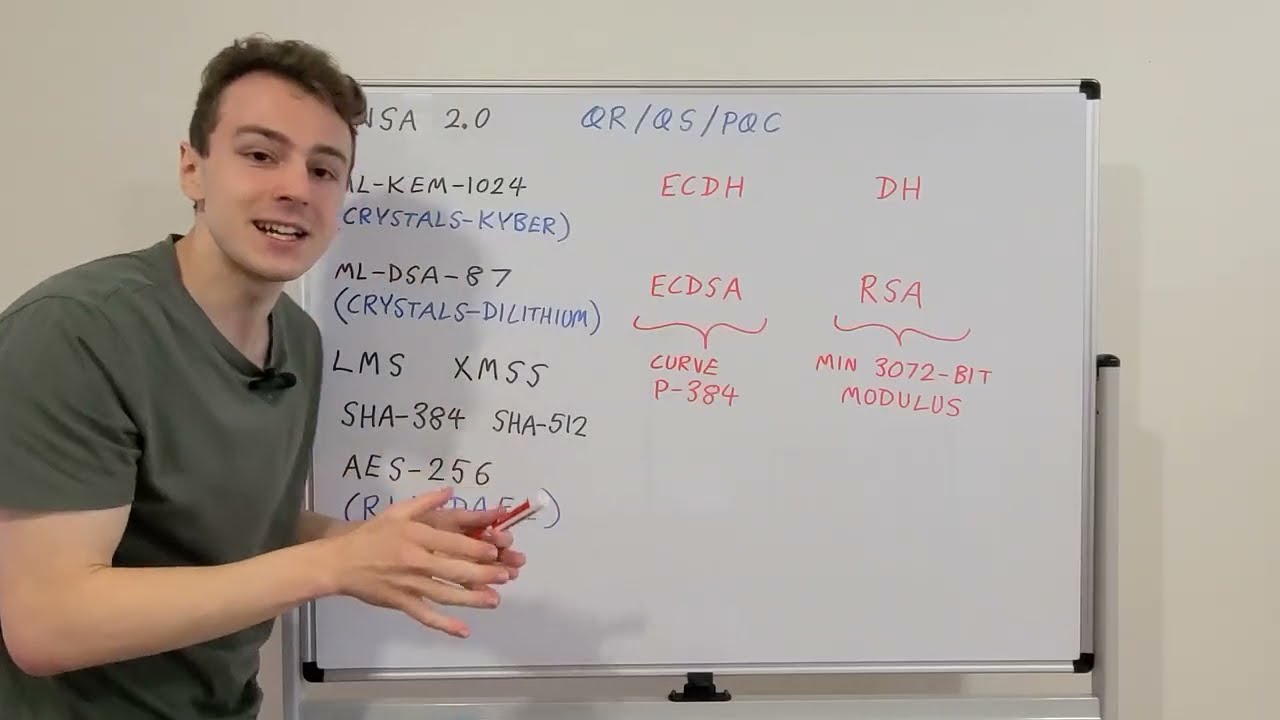 NSA 2.0 QR/QS/PQC
L-KEM-1024 ECDH DH
CRYSTALS-KYBER)
ML-DSA-87 ECDSA RSA
(CRYSTALS-DILITHIUM)
LMS XMSS CURVE MIN 3072-BIT
P-384 MODULUS
SHA-384 SHA-512
AES-256